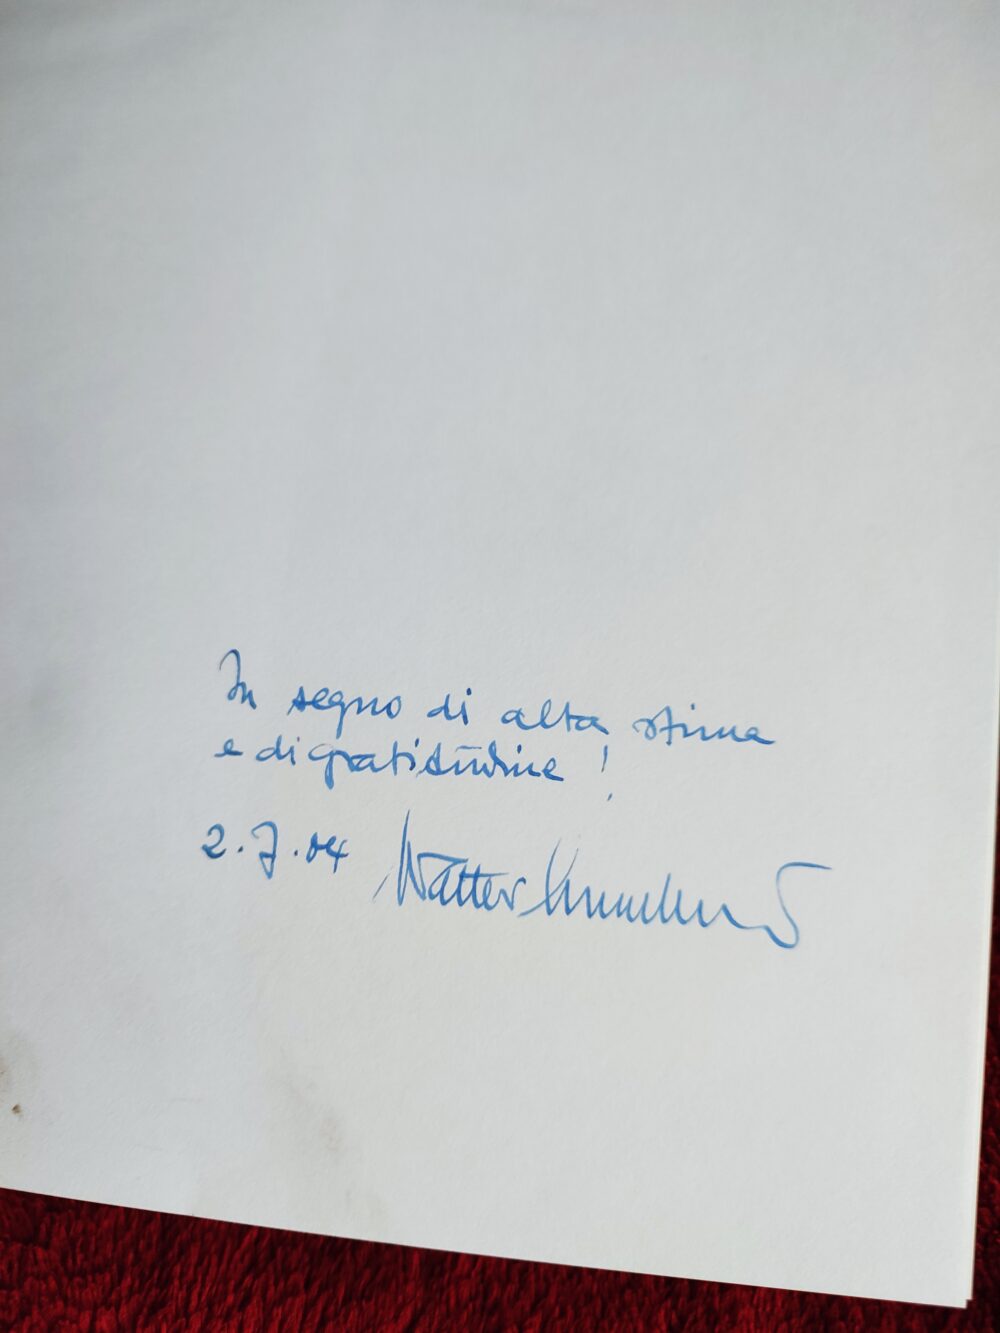 In segno di alta stima
e di gratitudine !
2.7.04 Walter